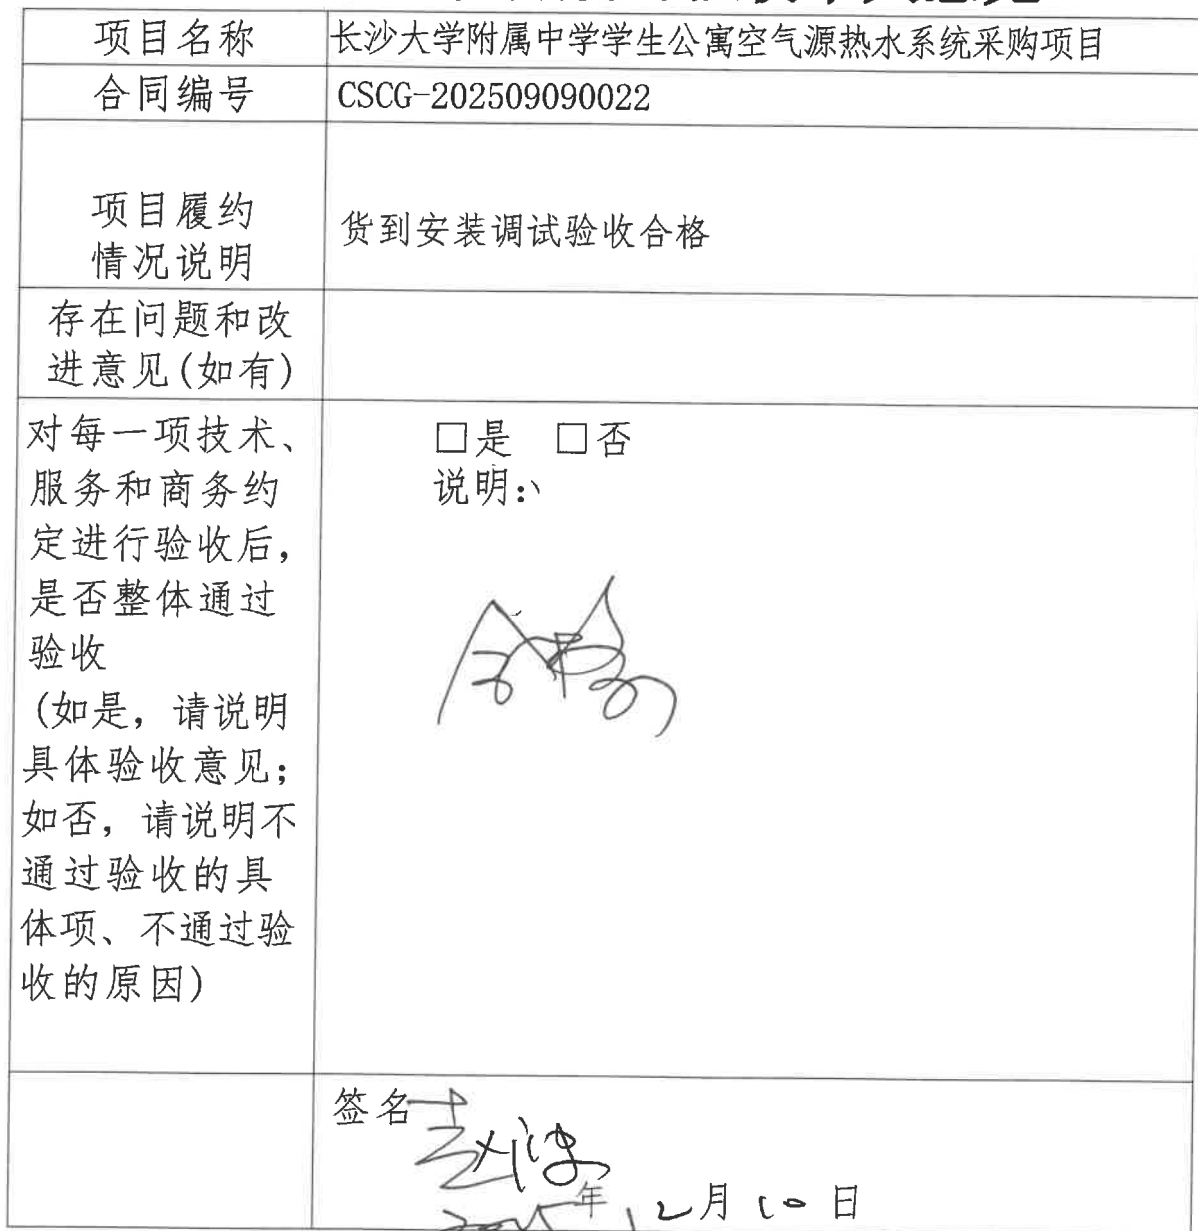 项目名称
长沙大学附属中学学生公寓空气源热水系统采购项目
合同编号
CSCG-202509090022
项目履约
情况说明
货到安装调试验收合格
存在问题和改
进意见(如有)
对每一项技术、
服务和商务约
定进行验收后，
是否整体通过
验收
(如是，请说明
具体验收意见；
如否，请说明不
通过验收的具
体项、不通过验
收的原因)
□是 □否
说明:
签名
年 12月10日